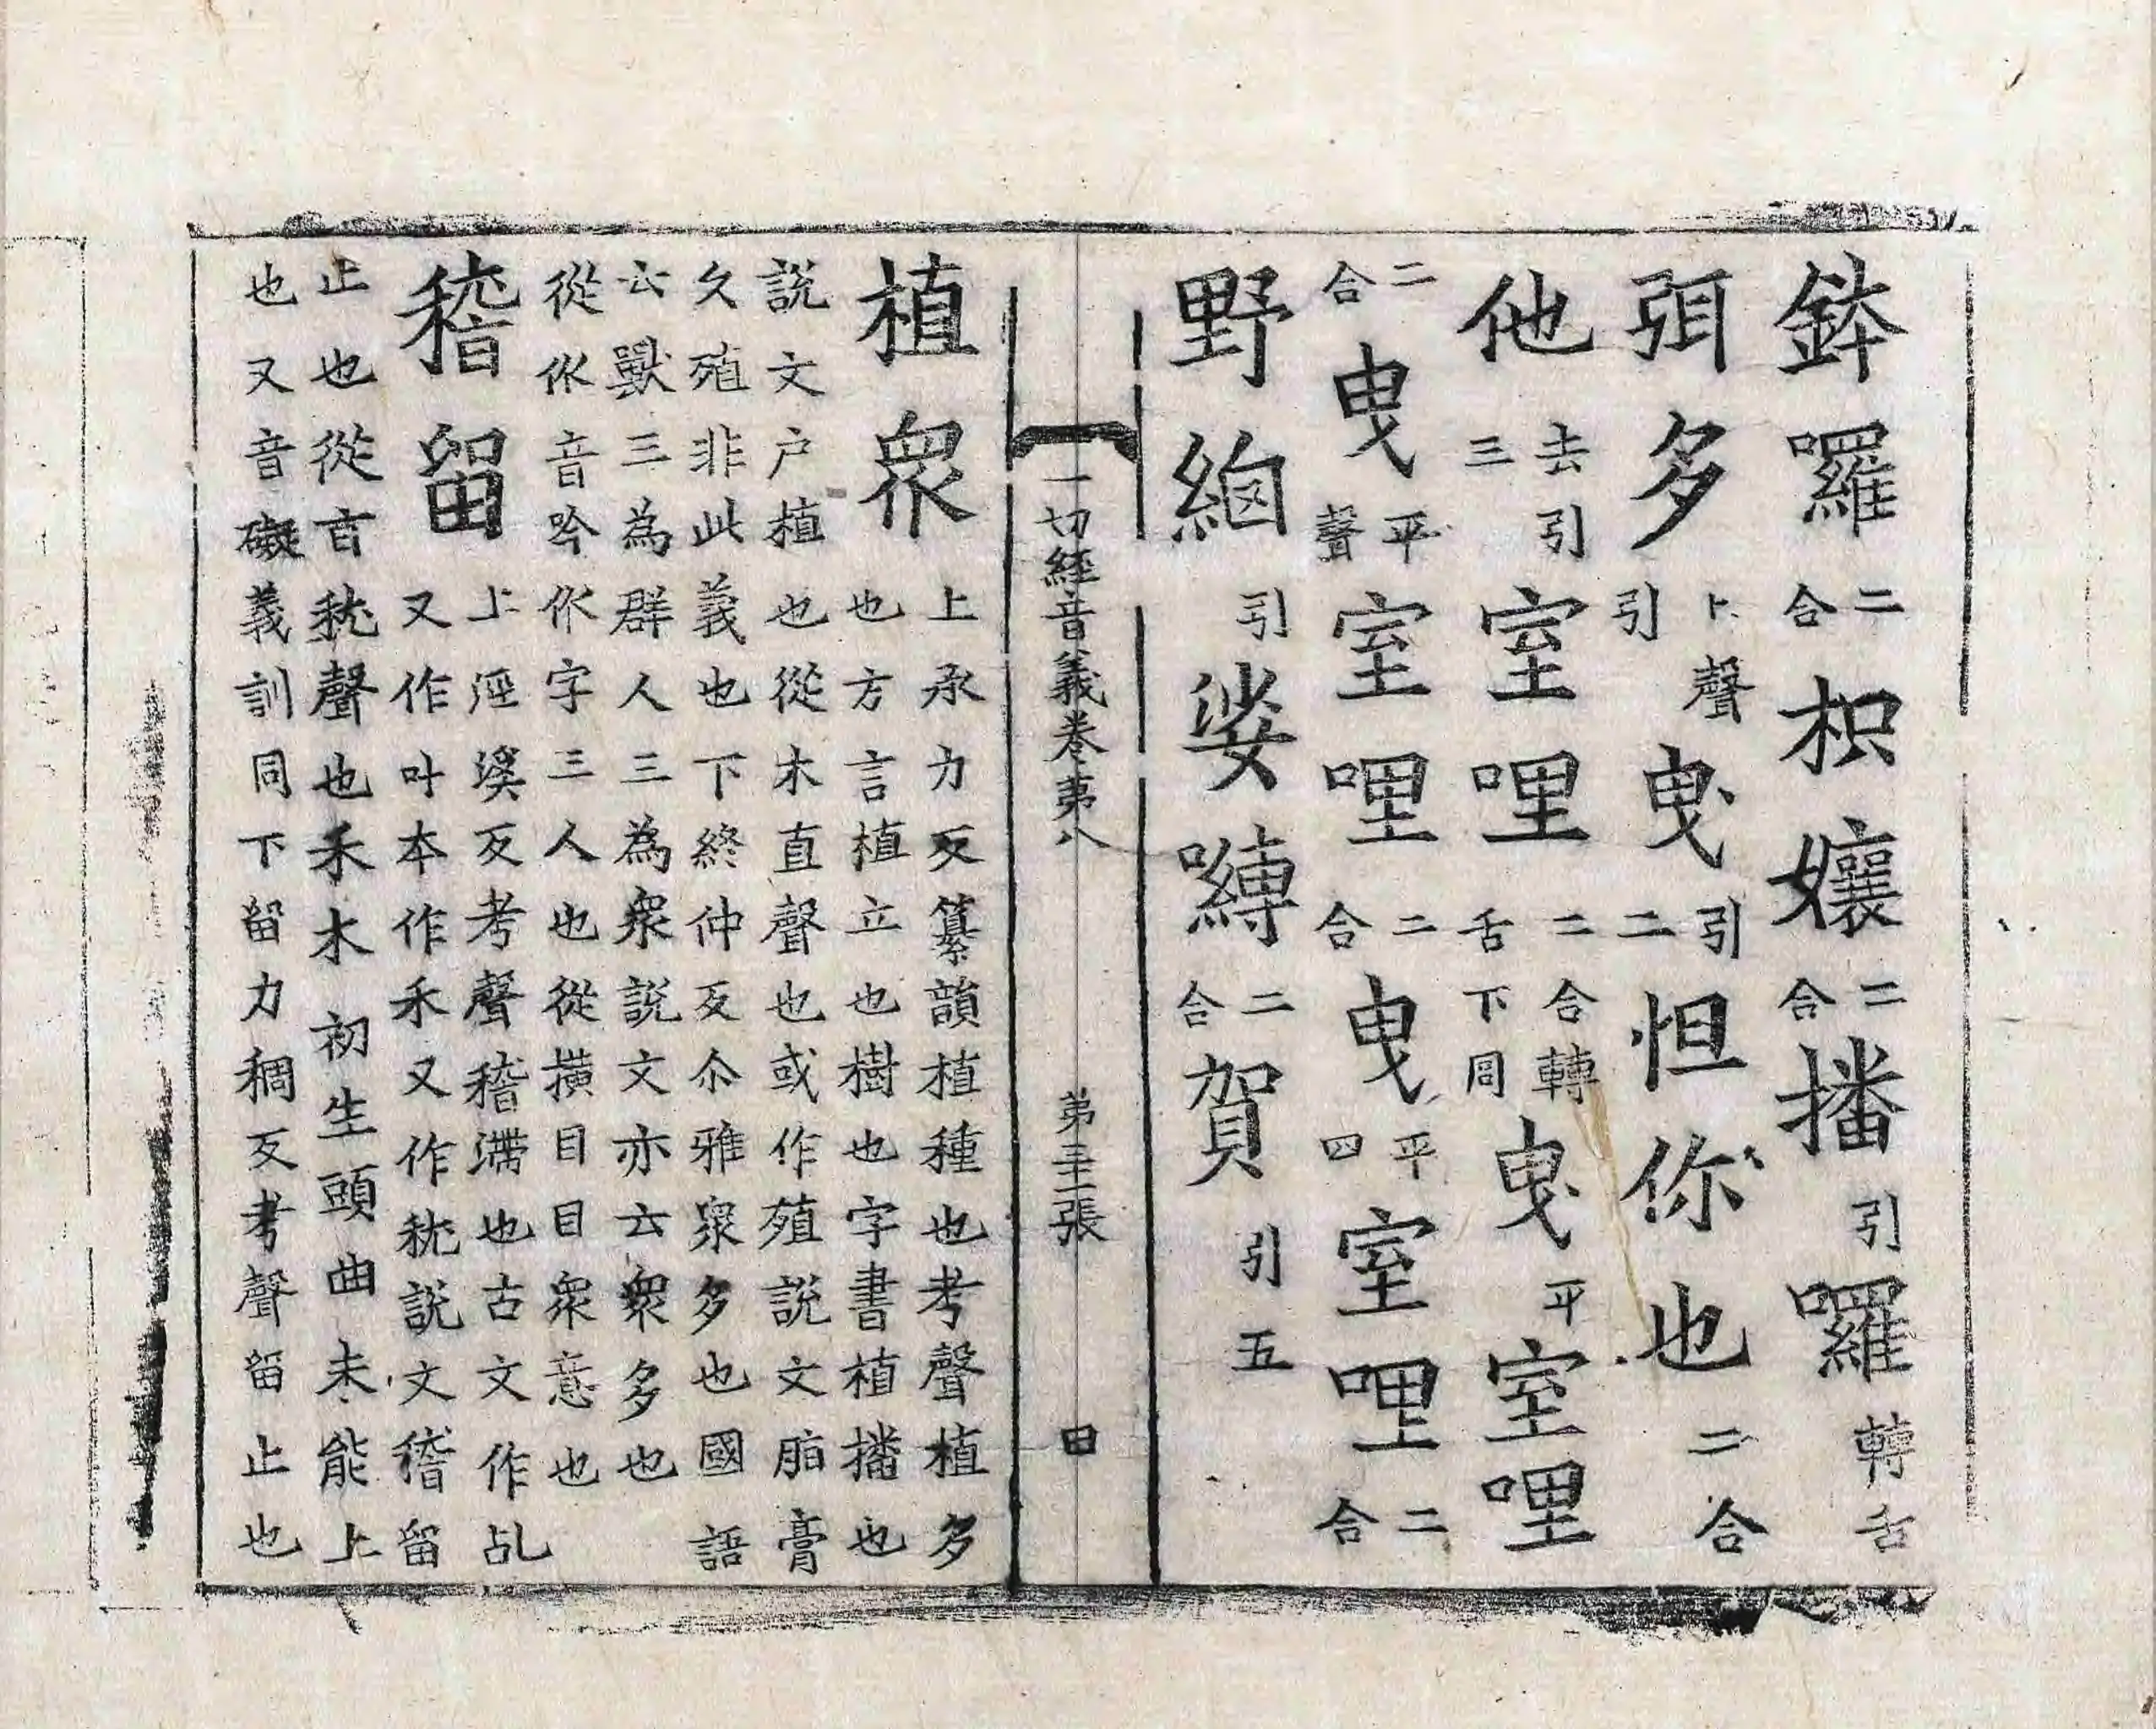 鉢囉二合枳孃二合播引囉轉舌
弭多上聲引曳引二怛你也二合
他去引三室哩二合轉舌下同曳平室哩
二合曳平聲室哩二合曳平四室哩二合
野𦀗引娑嚩二合賀引五
一切經音義卷苐八 苐三十二張 田
植眾上承力反纂韻植種也考聲植多
也方言植立也樹也字書植播也
說文户植也從木直聲也或作殖說文脂膏
久殖非此義也下終仲反尒雅眾多也國語
云獸三為群人三為衆說文亦云衆多也
從㐺音吟㐺字三人也從橫目目眾意也
稽留上溪反考聲稽滯也古文作乩
又作叶本作禾又作嵇說文稽留
止也從旨聲也禾木初生頭曲未能上
也又音礙義訓同下留力稠反考聲留止也